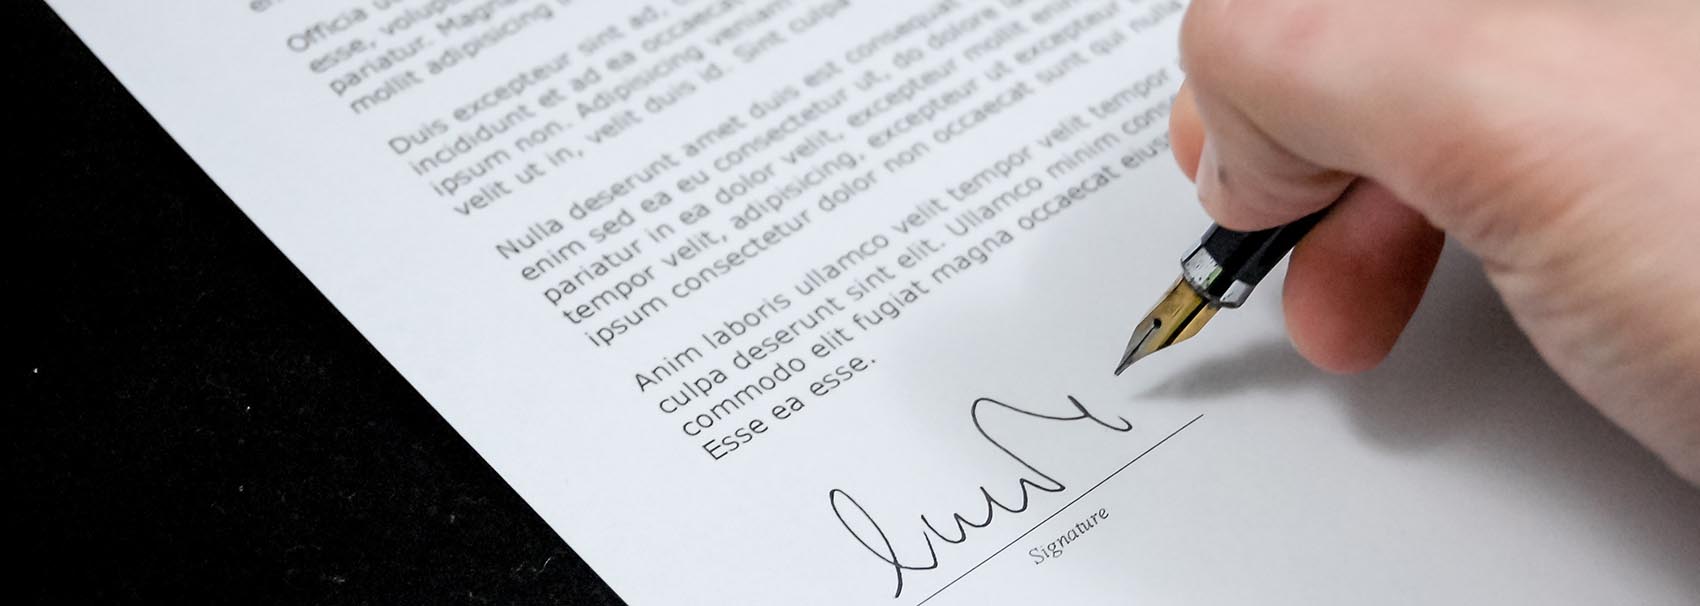 Officia
esse,
pariatur. Magna
mollit adipisicing
Duis excepteur sint ad,
incididunt et ad ea occaecat
ipsum non. Adipisicing veniam
velit ut in, velit duis id. Sint culpa
Nulla deserunt amet duis est consequat
enim sed ea eu consectetur ut, do dolore
pariatur in ea dolor velit, excepteur mollit enim
tempor velit, adipisicing, excepteur ut excepteur
ipsum consectetur dolor non occaecat sunt qui nulla
Anim laboris ullamco velit tempor velit tempor
culpa deserunt sint elit. Ullamco minim
commodo elit fugiat magna occaecat
Esse ea esse.
Signature